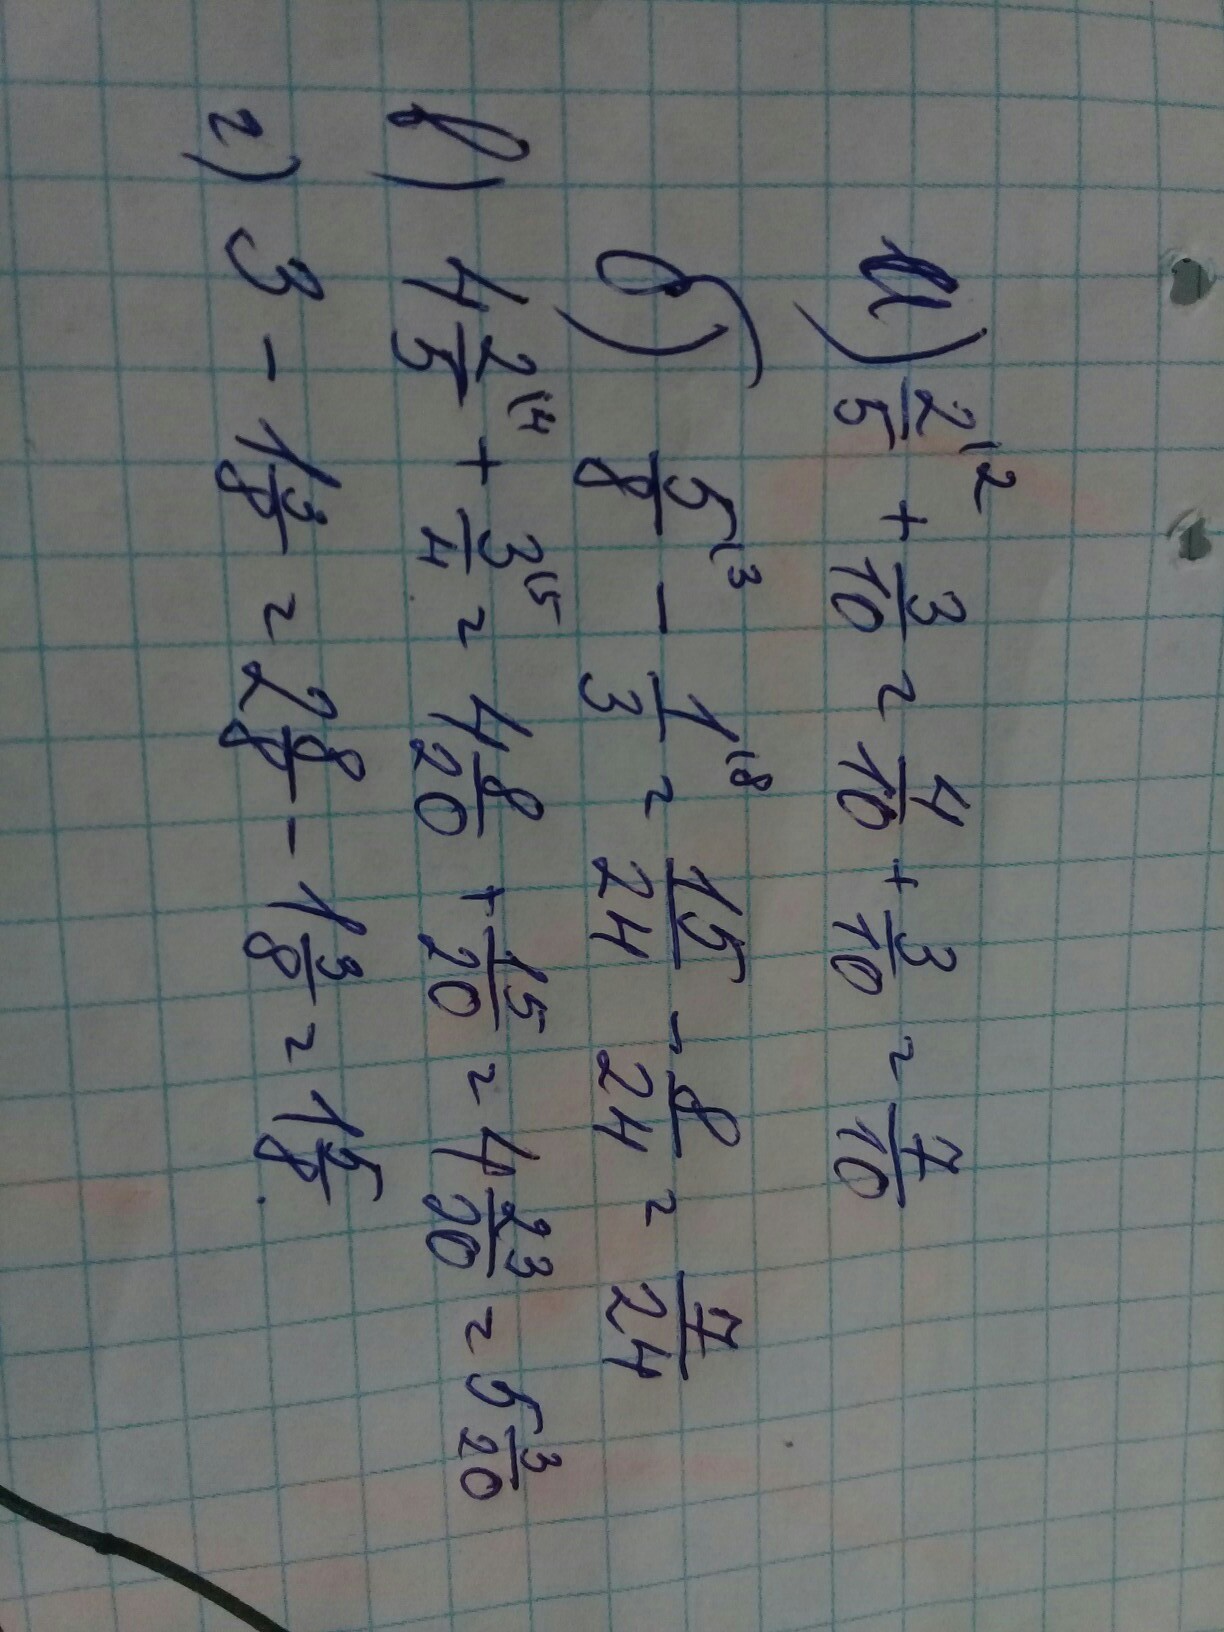 а) 2/5\2 + 3/10 = 4/10 + 3/10 = 7/10
б) 5/8\3 - 1/3\8 = 15/24 - 8/24 = 7/24
в) 4 2/5\4 + 3/4\5 = 4 8/20 + 15/20 = 4 23/20 = 5 3/20
г) 3 - 1 3/8 = 2 8/8 - 1 3/8 = 1 5/8.